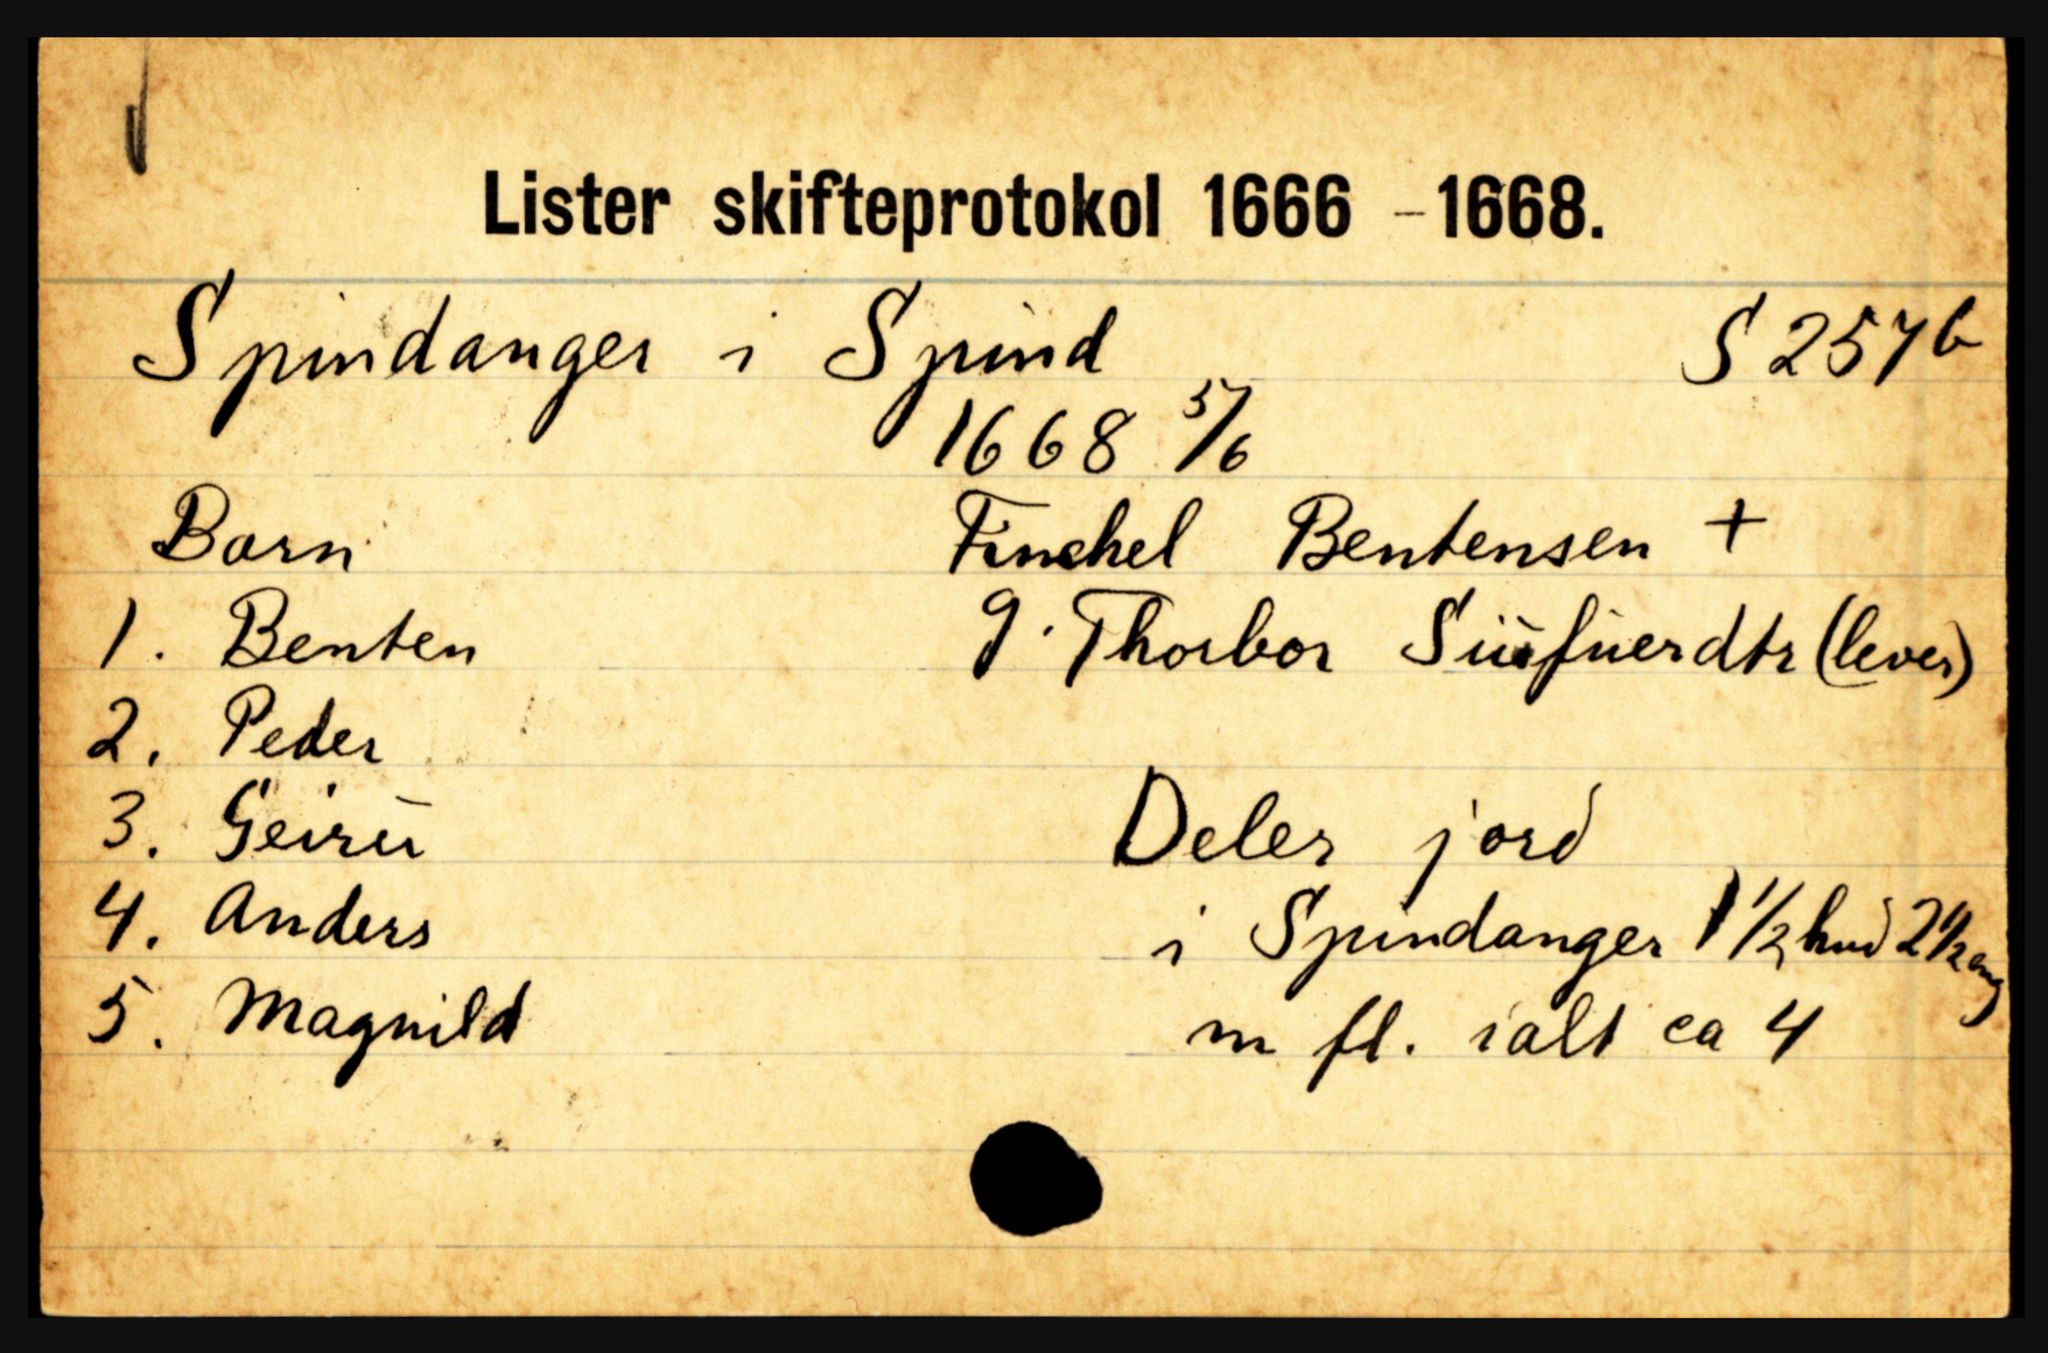 Lister skifteprotokol 1666 - 1668.
Spindanger i Spind S 257b
1668 5/6
Barn Finchel Bentensen +
1. Benten g. Thorbor (lever)
2. Peder
3. Geirü Deler jord
4. Anders i Spindanger 1 1/2 hud 2 1/2 eng
5. Magnild m fl. ialt ca 4